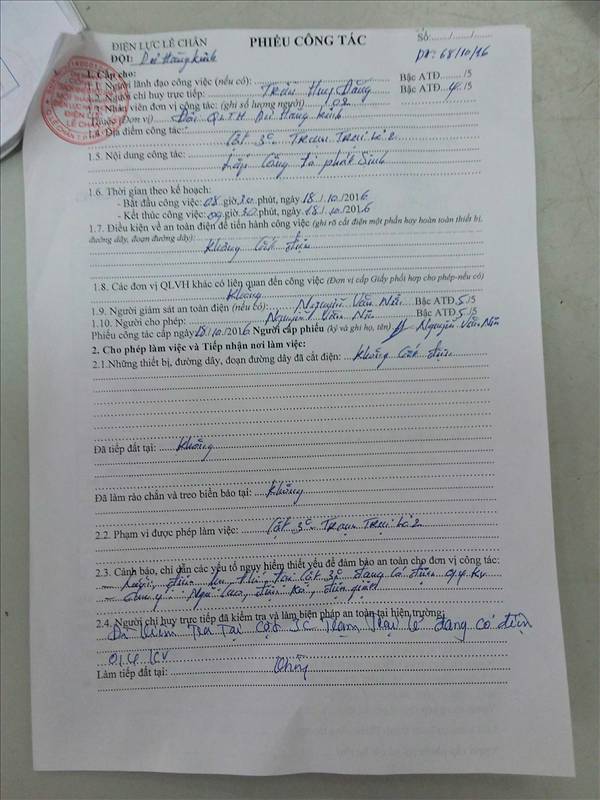 ĐIỆN LỰC LÊ CHÂN
PHIẾU CÔNG TÁC
Số:......./......./.......
ĐỘI: Dư Hàng Kênh
68/10/16
1. Cấp cho:
1.1. Người lãnh đạo công việc (nếu có): Bậc ATĐ......./5
1.2. Người chỉ huy trực tiếp: Trần Huy Đăng Bậc ATĐ...4.../5
1.3. Nhân viên đơn vị công tác: (ghi số lượng người) 02
Thuộc (Đơn vị) Đội QLTH Dư Hàng Kênh
1.4. Địa điểm công tác: Cột 3C Trạm Trại Lẻ 2
1.5. Nội dung công tác: Lắp công tơ phát sinh
1.6. Thời gian theo kế hoạch:
- Bắt đầu công việc: 08 giờ 30 phút, ngày 18/10/2016
- Kết thúc công việc: 09 giờ 30 phút, ngày 18/10/2016
1.7. Điều kiện về an toàn điện để tiến hành công việc (ghi rõ cắt điện một phần hay hoàn toàn thiết bị,
đường dây, đoạn đường dây): Không cắt điện
1.8. Các đơn vị QLVH khác có liên quan đến công việc (Đơn vị cấp Giấy phối hợp cho phép-nếu có)
Không
1.9. Người giám sát an toàn điện (nếu có): Nguyễn Văn Bậc ATĐ 5/5
1.10. Người cho phép: Nguyễn Văn Bậc ATĐ 5/5
Phiếu công tác cấp ngày 18/10/2016 Người cấp phiếu (ký và ghi họ, tên) Nguyễn Văn
2. Cho phép làm việc và Tiếp nhận nơi làm việc:
2.1.Những thiết bị, đường dây, đoạn đường dây đã cắt điện: Không cắt điện
Đã tiếp đất tại: Không
Đã làm rào chắn và treo biển báo tại: Không
2.2. Phạm vi được phép làm việc: Cột 3C Trạm Trại Lẻ 2
2.3. Cảnh báo, chỉ dẫn các yếu tố nguy hiểm thiết yếu để đảm bảo an toàn cho đơn vị công tác:
- điện tại cột 3C đang có điện 0,4 KV
- Chú ý: Ngã cao, điện giật
2.4. Người chỉ huy trực tiếp đã kiểm tra và làm biện pháp an toàn tại hiện trường:
Đã kiểm tra tại cột 3C Trạm Trại Lẻ đang có điện
0,4 KV
Làm tiếp đất tại: Không